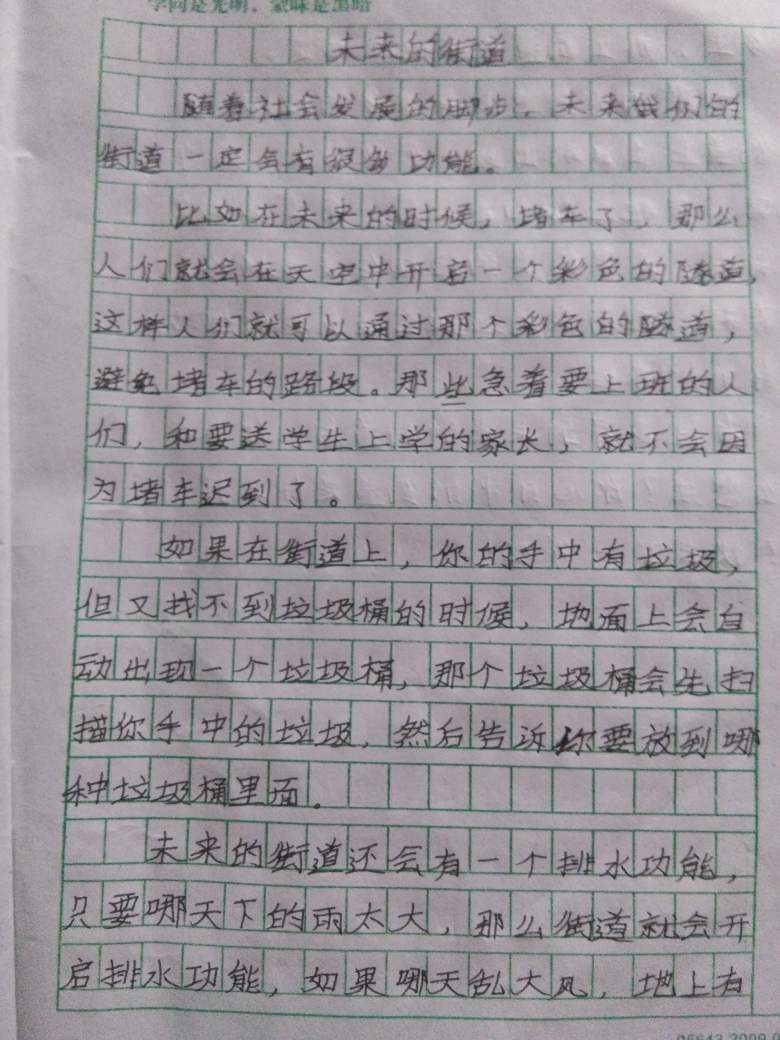 学问是光明，蒙昧是黑暗
未来的街道
随着社会发展的脚步，未来我们的
街道一定会有很多功能。
比如在未来的时候，堵车了，那么
人们就会在天空中开启一个彩色的隧道，
这样人们就可以通过那个彩色的隧道，
避免堵车的路段。那些急着要上班的人
们，和要送学生上学的家长，就不会因
为堵车迟到了。
如果在街道上，你的手中有垃圾，
但又找不到垃圾桶的时候，地面上会自
动出现一个垃圾桶，那个垃圾桶会先扫
描你手中的垃圾，然后告诉你要放到哪
种垃圾桶里面。
未来的街道还会有一个排水功能，
只要哪天下的雨太大，那么街道就会开
启排水功能，如果哪天乱大风，地上有